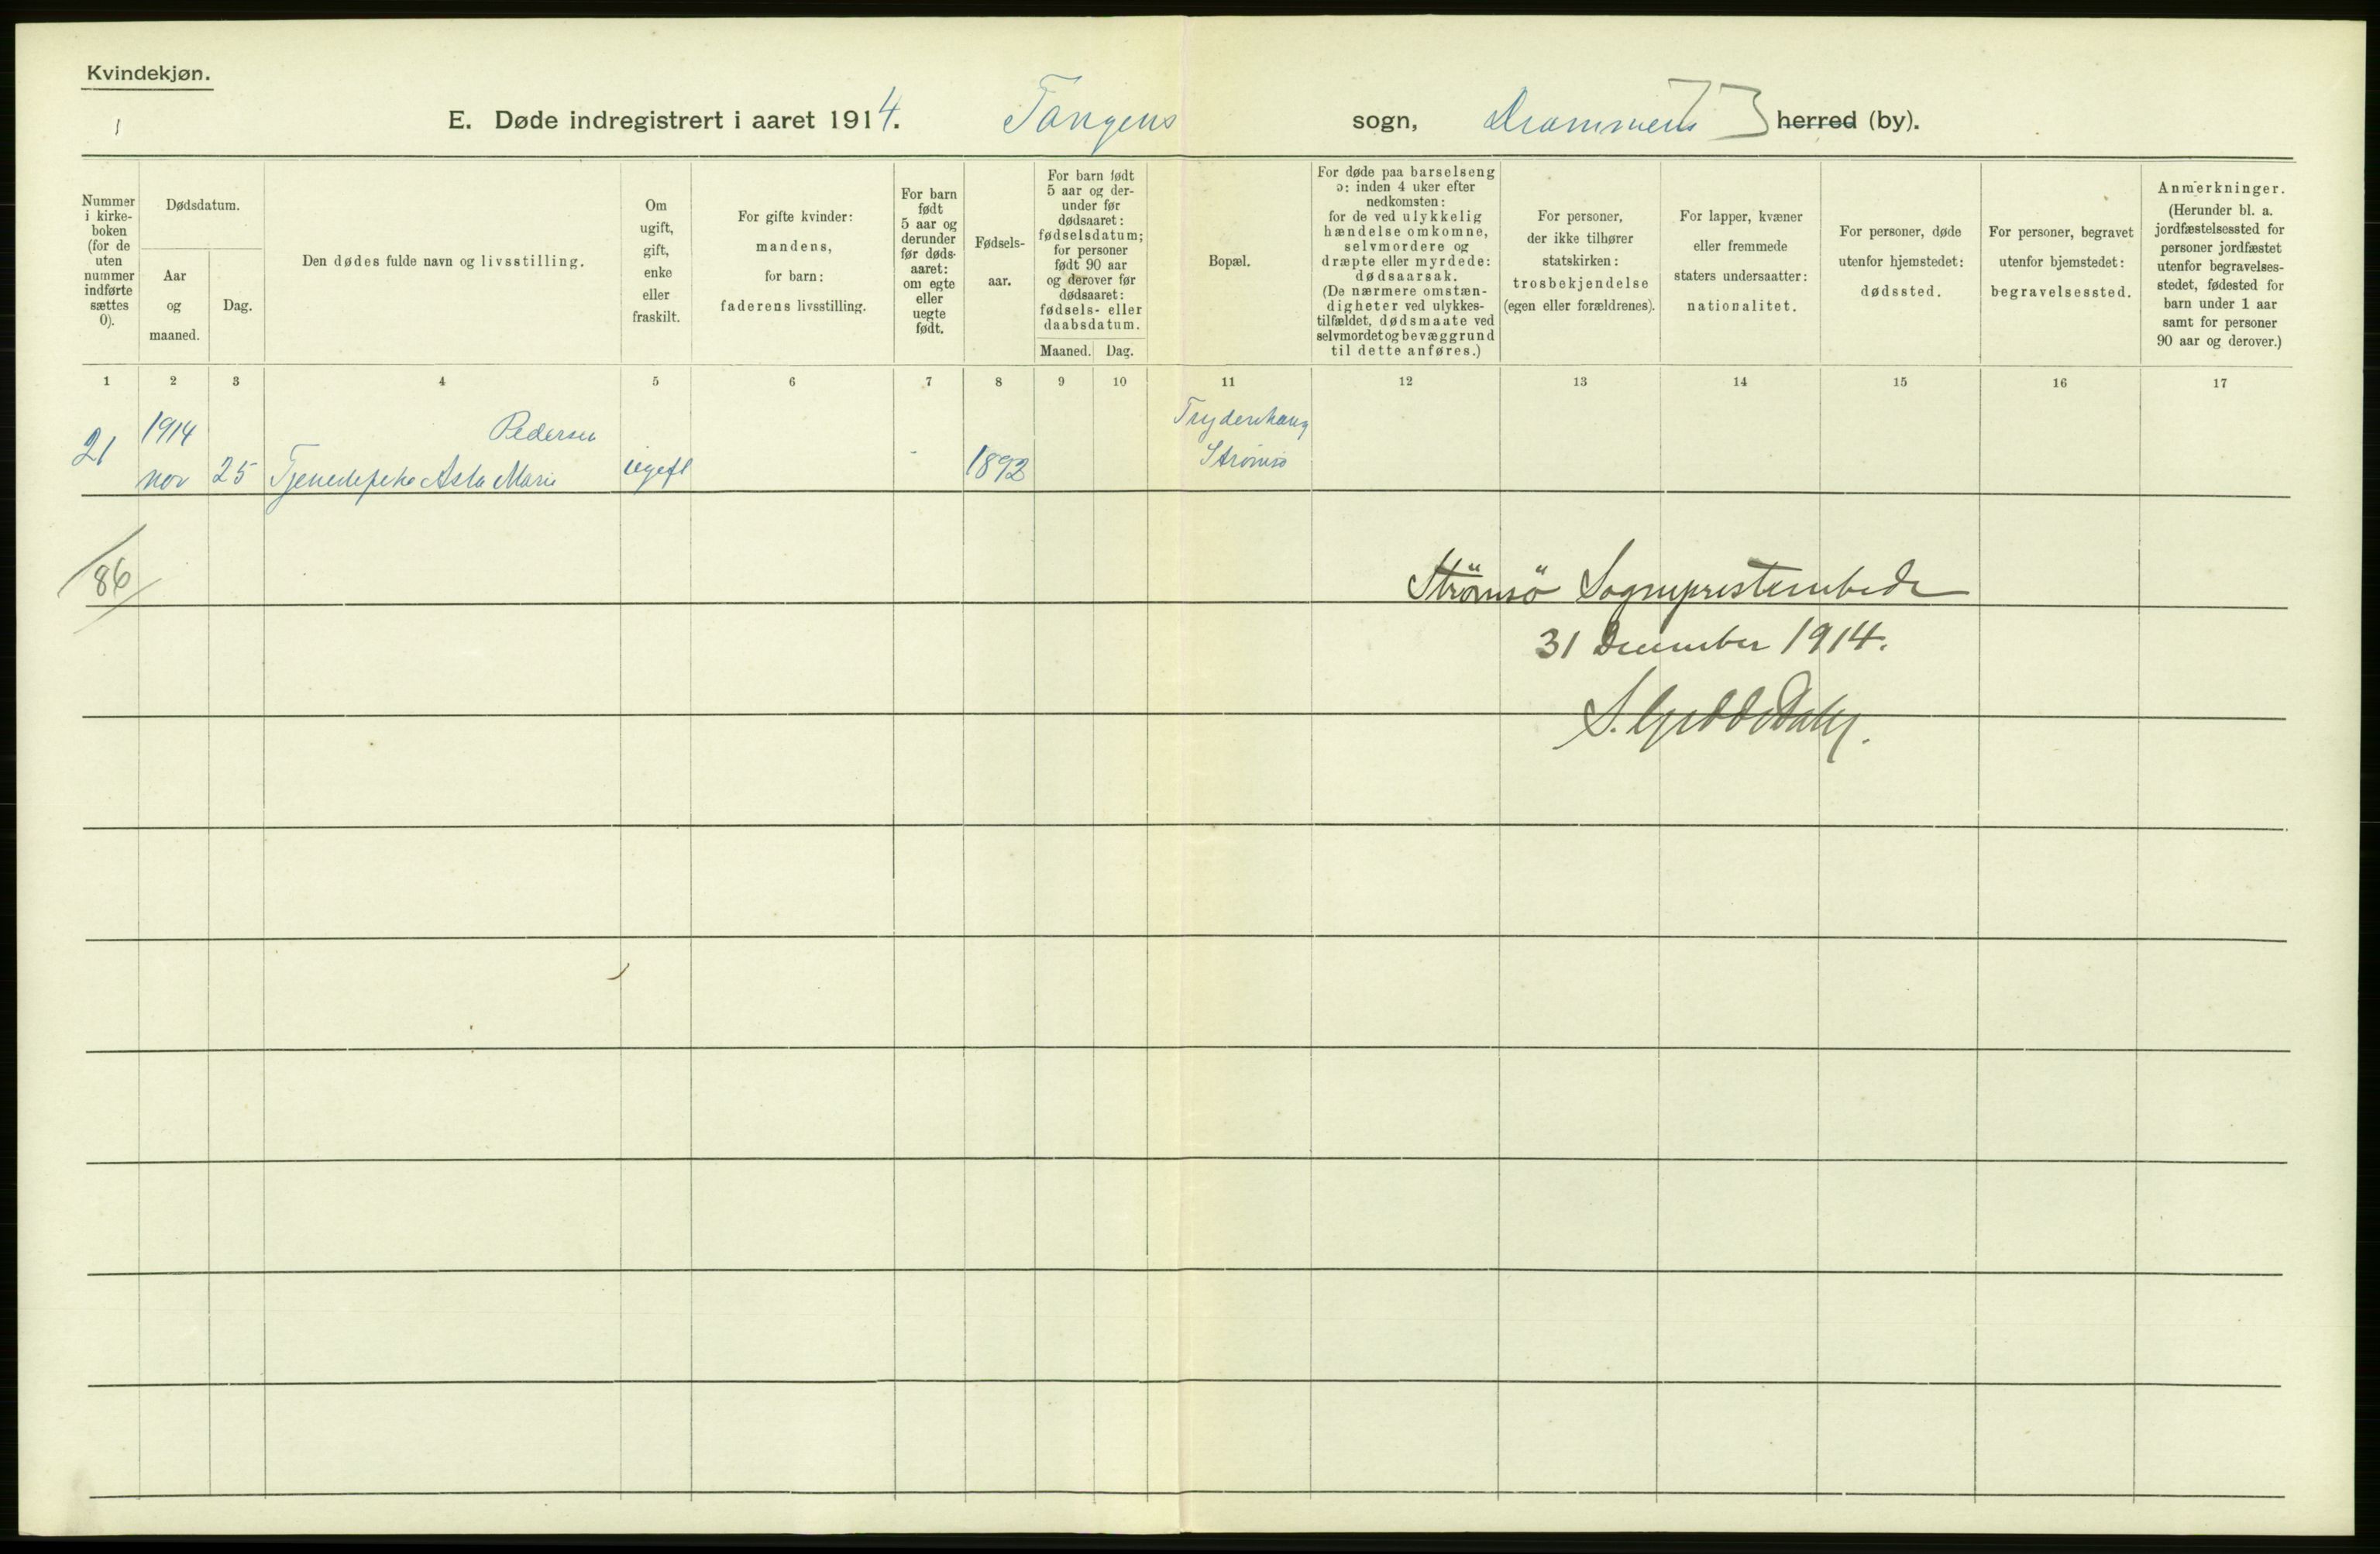 Kvindekjøn.
1
E. Døde indregistrert i aaret 1914. Tangens sogn, Drammens herred (by).
Nummer i kirke- boken (for de uten nummer indførte sættes 0).
Dødsdatum.
Aar og maaned.
Dag.
Den dødes fulde navn og livsstilling.
Om ugift, gift, enke eller fraskilt.
For gifte kvinder: mandens, for barn: faderens livsstilling.
For barn født 5 aar og derunder før døds- aaret: om egte eller uegte født.
Fødsels- aar.
For barn født 5 aar og der- under før dødsaaret: fødselsdatum; for personer født 90 aar og derover før dødsaaret: fødsels- eller daabsdatum.
Maaned. Dag.
Bopæl.
For døde paa barselseng ɔ: inden 4 uker efter nedkomsten: for de ved ulykkelig hændelse omkomne, selvmordere og dræpte eller myrdede: dødsaarsak. (De nærmere omstæn- digheter ved ulykkes- tilfældet, dødsmaate ved selvmordet og bevæggrund til dette anføres.)
For personer, der ikke tilhører statskirken: trosbekjendelse (egen eller forældrenes).
For lapper, kvæner eller fremmede staters undersaatter: nationalitet.
For personer, døde utenfor hjemstedet: dødssted.
For personer, begravet utenfor hjemstedet: begravelsessted.
Anmerkninger. (Herunder bl. a. jordfæstelsessted for personer jordfæstet utenfor begravelses- stedet, fødested for barn under 1 aar samt for personer 90 aar og derover.)
1 2 3 4 5 6 7 8 9 10 11 12 13 14 15 16 17
1914 Pedersen
21 nov 25 Tjenestepike Asta Marie ugift - 1892 Strømsø
86
Strömsö Sogneprestembede
31 December 1914.